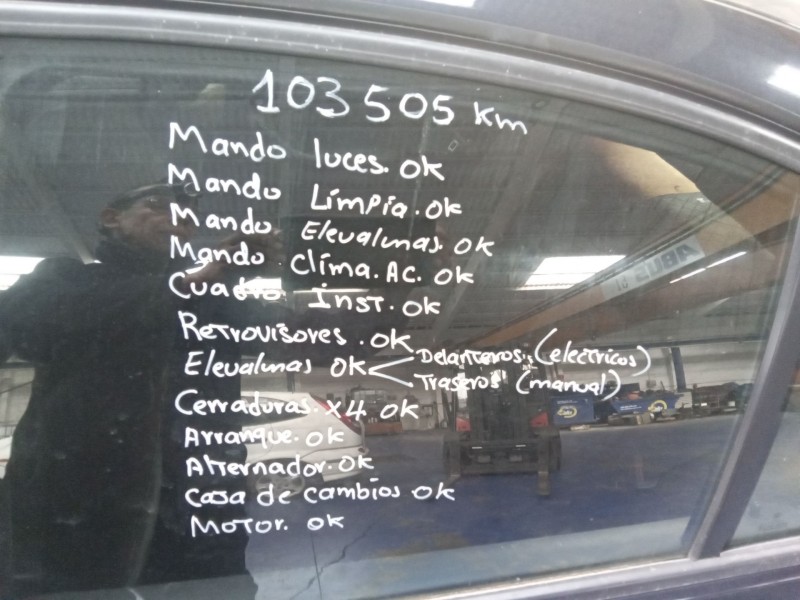 103505 km
Mando luces. OK
Mando Limpia. OK
Mando Elevalunas. OK
Mando Clima. AC. OK
Cuadro Inst. OK
Retrovisores. OK
Elevalunas OK < Delanteros. (electricos)
Traseros (manual)
Cerraduras. x4. OK
Arranque. OK
Alternador. OK
Casa de cambios OK
Motor. OK
ABUS